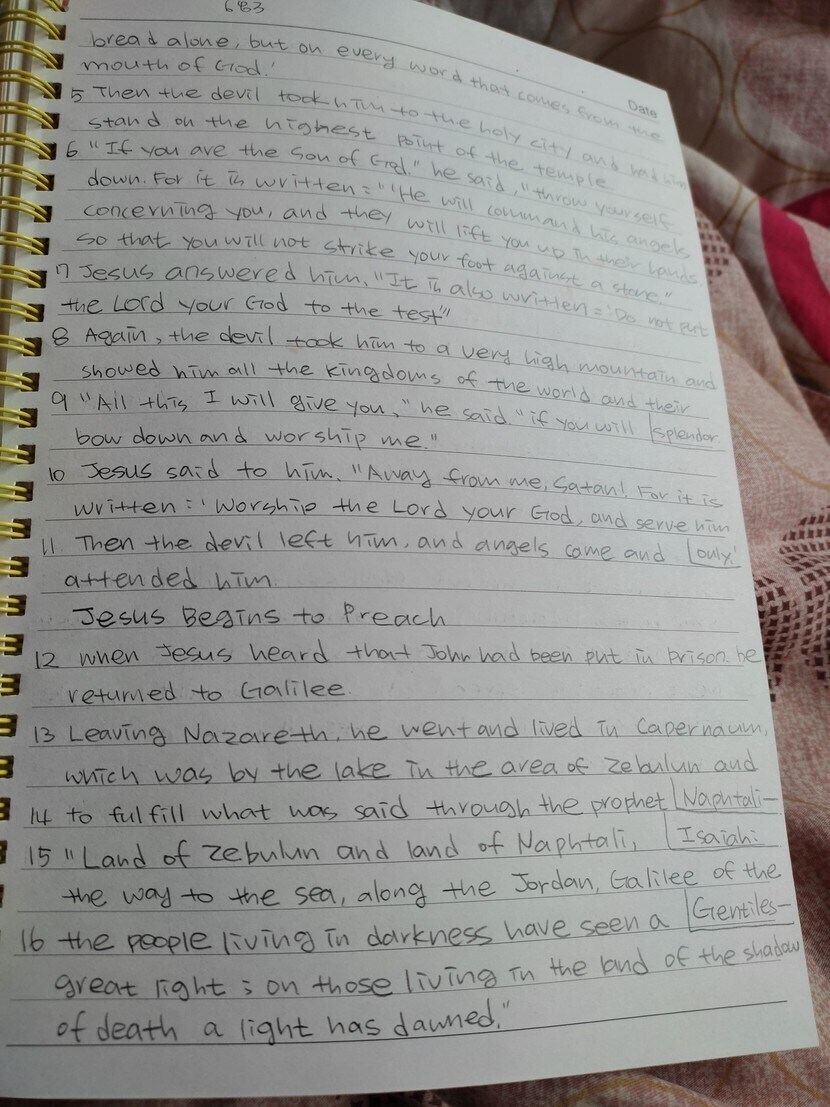 683
Date
bread alone, but on every word that comes from the
mouth of God.'
5 Then the devil took him to the holy city and had him
stand on the highest point of the temple
6 "If you are the Son of God." he said, "throw yourself
down. For it is written = "'He will command his angels
concerning you, and they will lift you up in their hands,
so that you will not strike your foot against a stone."
7 Jesus answered him, "It is also written = 'Do not put
the Lord your God to the test'"
8 Again, the devil took him to a very high mountain and
showed him all the kingdoms of the world and their
9 "All this I will give you," he said "if you will splendor
bow down and worship me."
10 Jesus said to him. "Away from me, Satan! For it is
written : 'Worship the Lord your God, and serve him
11 Then the devil left him, and angels came and only'
attended him
Jesus Begins to Preach
12 when Jesus heard that John had been put in prison. he
returned to Galilee.
13 Leaving Nazareth, he went and lived in Capernaum,
which was by the lake in the area of Zebulun and
14 to fulfill what was said through the prophet Naphtali-
15 "Land of Zebulun and land of Naphtali, Isaiah:
the way to the sea, along the Jordan, Galilee of the
16 the people living in darkness have seen a Gentiles-
great light ; on those living in the land of the shadow
of death a light has dawned."